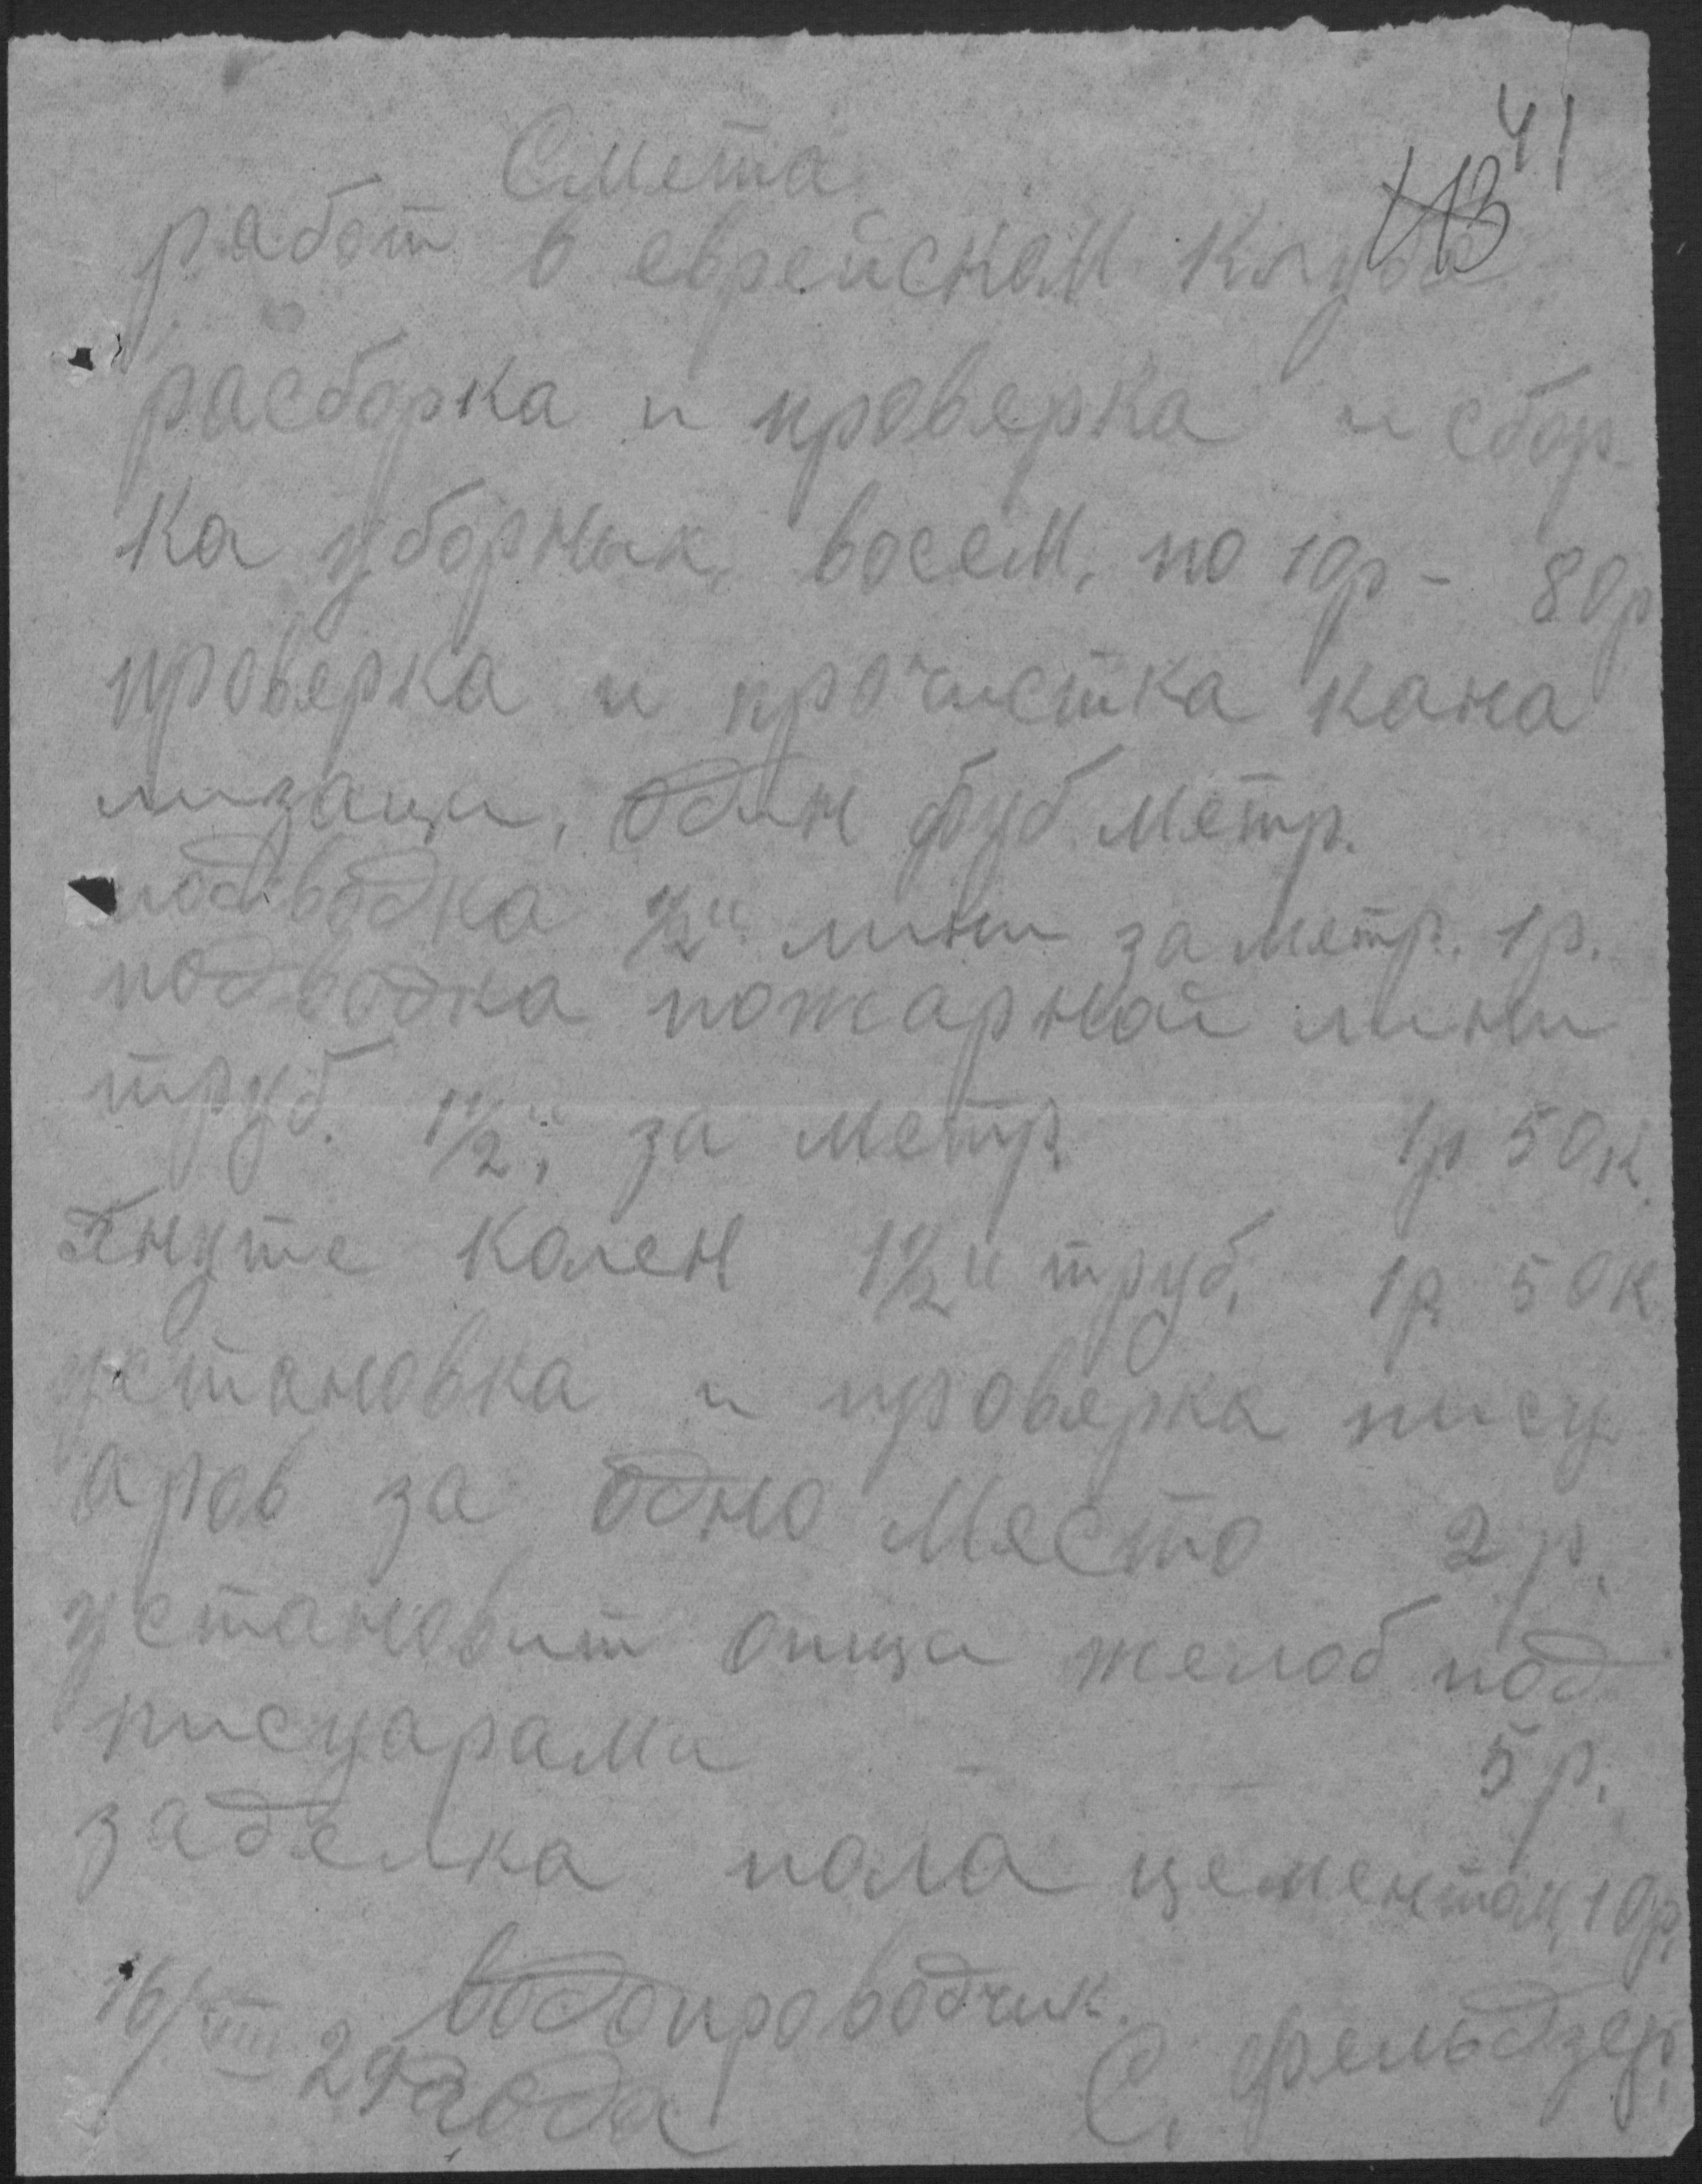 41
43
Смета
работ в еврейском клубе
расборка и проверка и сбор-
ка уборных, восем, по 10р - 80р
проверка и прочистка кана
лизаци, один фуб метр.
подводка 1/2" лини за метр. 1р.
подводка пожарной лини
труб. 1 1/2", за метр 1р 50к.
гнуте колен 1 1/2" труб, 1р 50к
установка и проверка пису
аров за одно место 2р.
установит опщи желоб под
писуарами - - 5р.
заделка пола цементом, 10р,
водопроводчик.
16/III 29 года
С. Фельдзер,